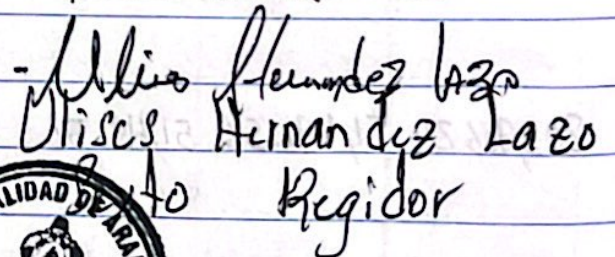 - Ulises Hernandez Lazo
Ulises Hernandez Lazo
to Regidor
ALIDAD DE ARA